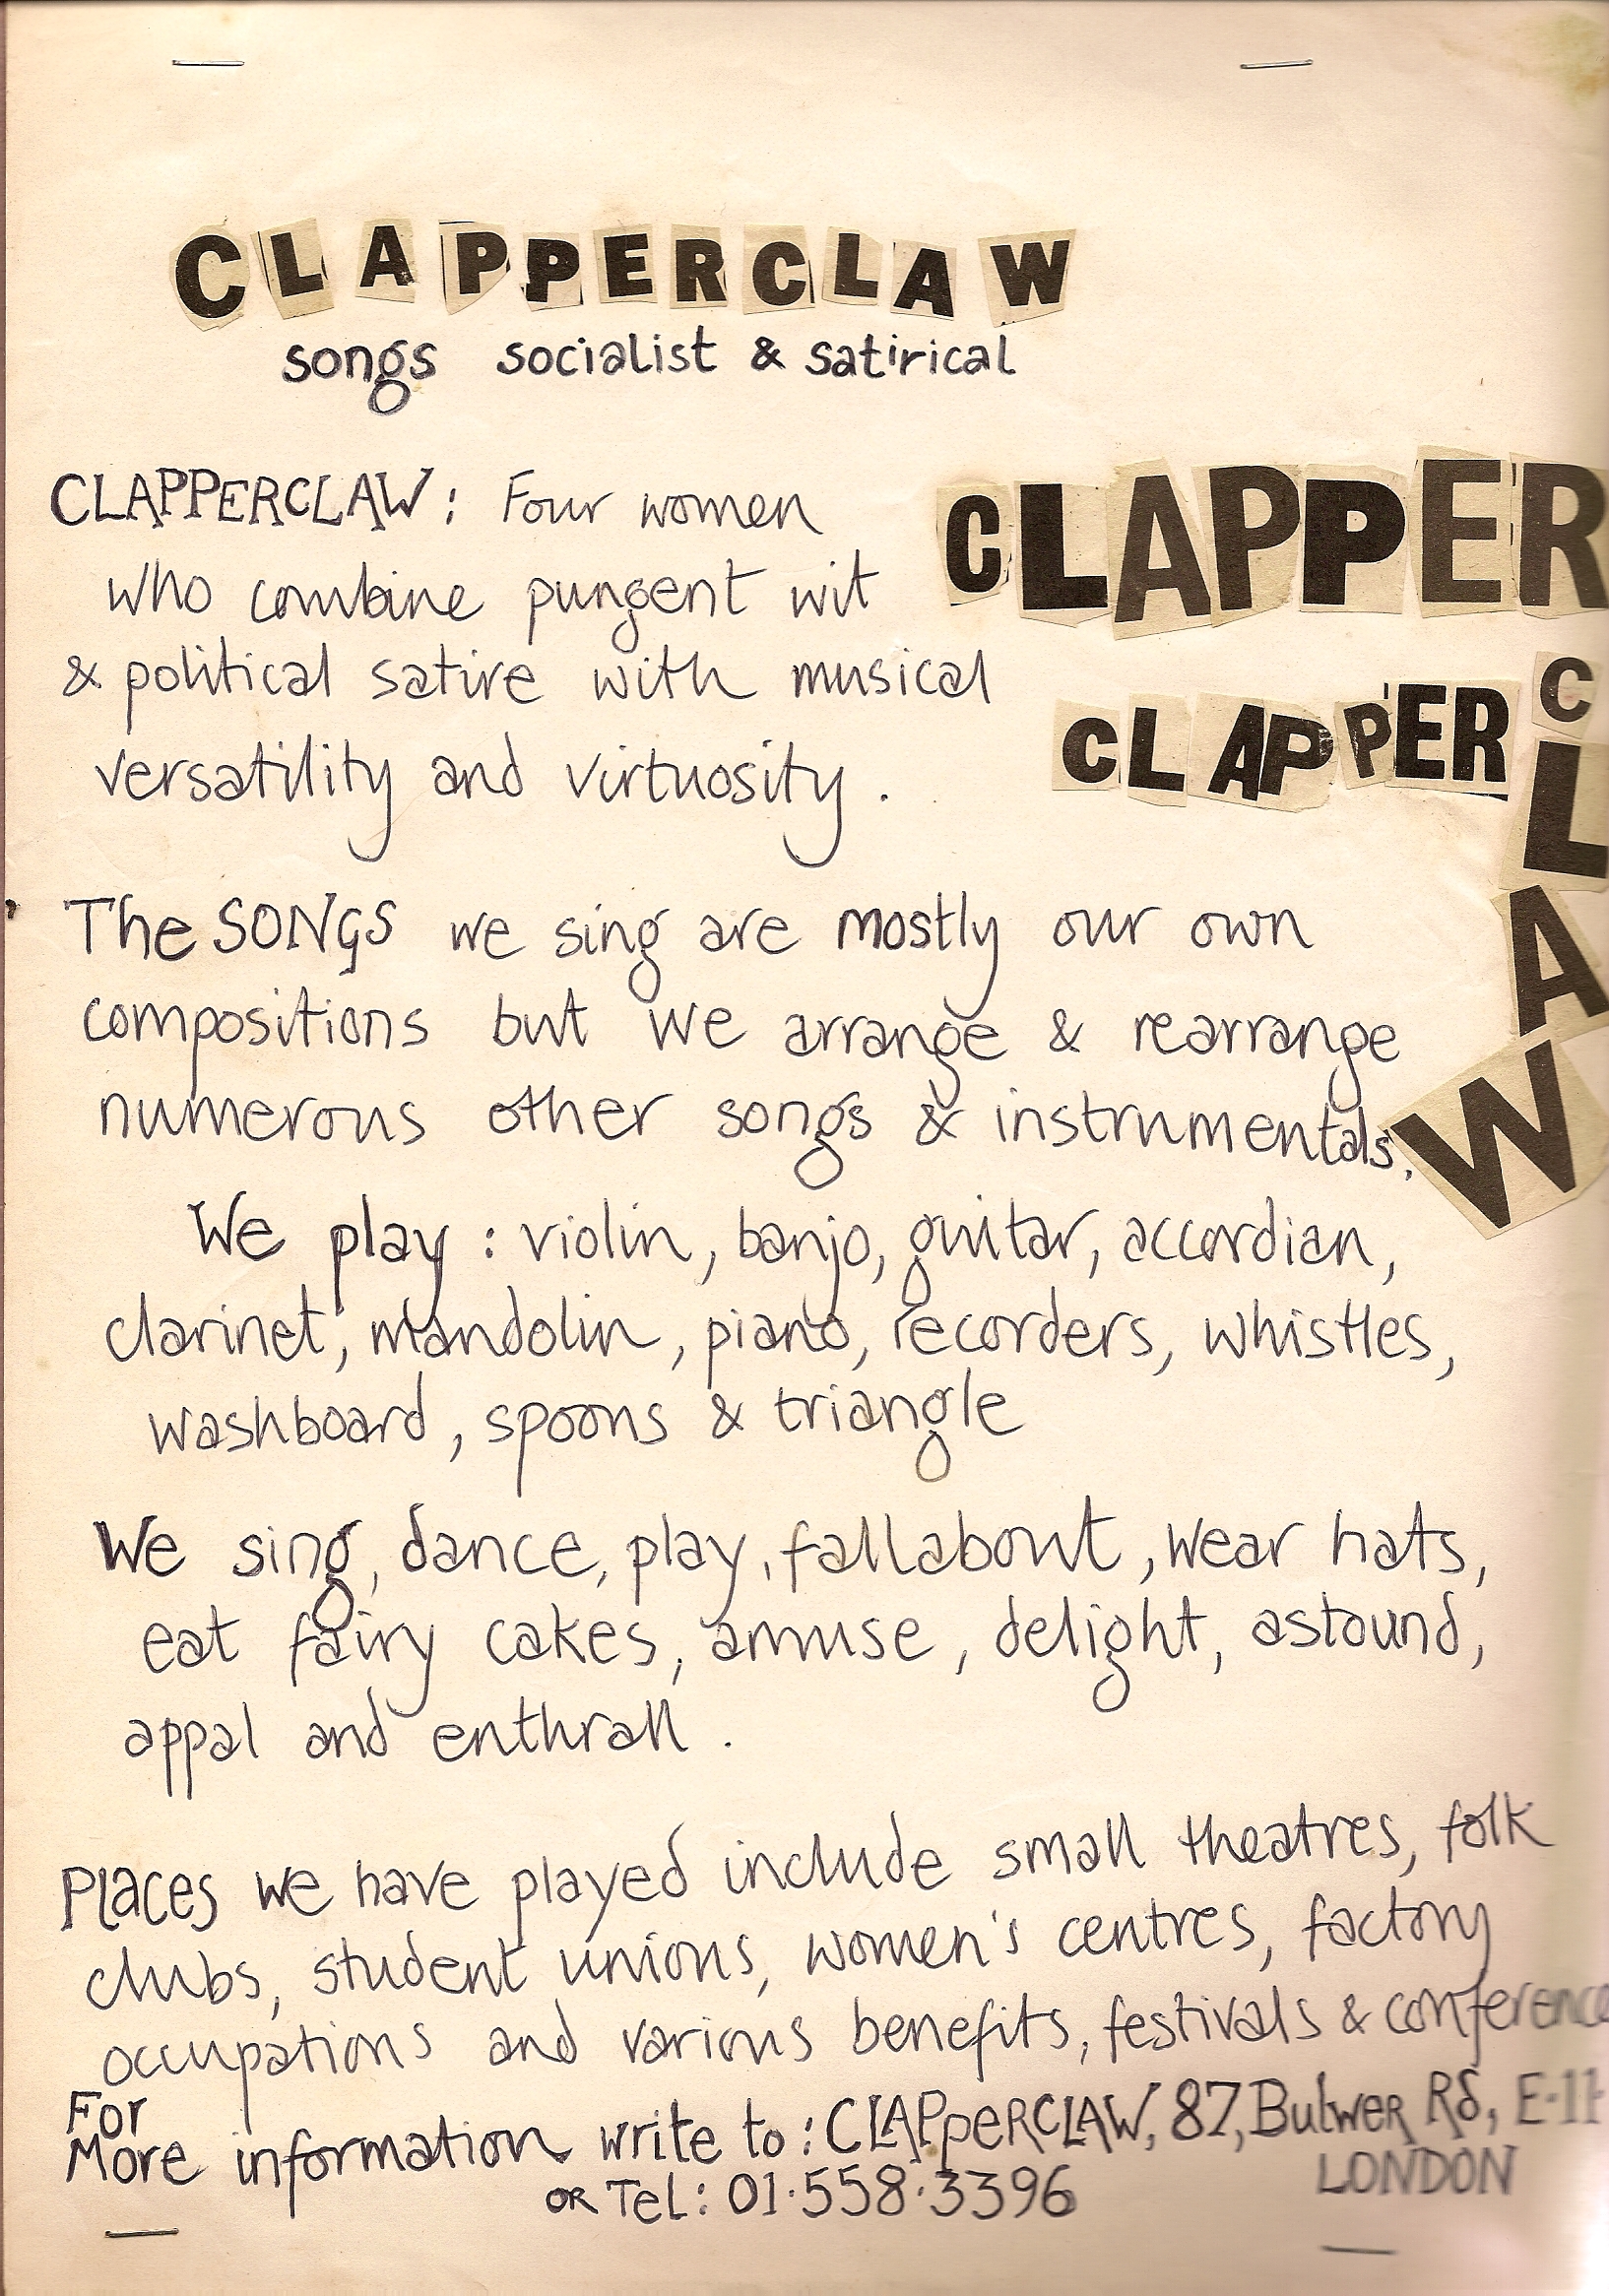 CLAPPERCLAW
songs socialist & satirical
CLAPPERCLAW: Four women
who combine pungent wit
& political satire with musical
versatility and virtuosity.
CLAPPER
CLAPPER
CLAW
The SONGS we sing are mostly our own
compositions but we arrange & rearrange
numerous other songs & instrumentals.
We play: violin, banjo, guitar, accordian,
clarinet, mandolin, piano, recorders, whistles,
washboard, spoons & triangle
We sing, dance, play, fallabout, wear hats,
eat fairy cakes, amuse, delight, astound,
appal and enthrall.
Places we have played include small theatres, folk
clubs, student unions, women's centres, factory
occupations and various benefits, festivals & conference
For
More information write to: CLAPperCLAW, 87, Bulwer Rd, E-11
LONDON
OR Tel: 01·558·3396